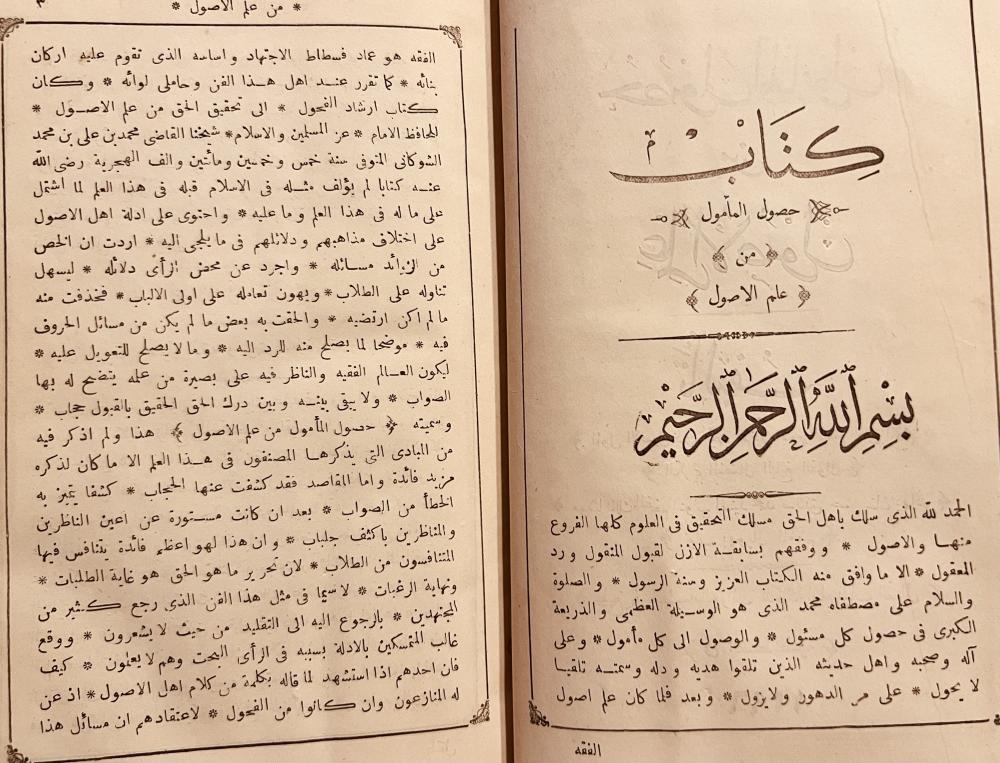 كتاب
حصول المأمول
﴿ من ﴾
﴿ علم الاصول ﴾
بسم الله الرحمن الرحيم
الحمد لله الذى سلك باهل الحق مسلك التحقيق فى العلوم كلها الفروع
منها والاصول * ووفقهم بسابقة الازل لقبول المنقول ورد
المعقول * الا ما وافق منه الكتاب العزيز وسنة الرسول * والصلوة
والسلام على مصطفاه محمد الذى هو الوسيلة العظمى والذريعة
الكبرى فى حصول كل مسئول * والوصول الى كل مأمول * وعلى
آله وصحبه واهل حديثه الذين تلقوا هديه ودله وسمته تلقيا
لا يحول * على مر الدهور ولا يزول * وبعد فلما كان علم اصول
الفقه
* من علم الاصول *
الفقه هو عماد فسطاط الاجتهاد واساسه الذى تقوم عليه اركان
بنائه * كما تقرر عند اهل هذا الفن وحاملى لوائه * وكان
كتاب ارشاد الفحول * الى تحقيق الحق من علم الاصول *
للحافظ الامام * عز المسلمين والاسلام * شيخنا القاضى محمد بن على بن محمد
الشوكانى المتوفى سنة خمس وخمسين ومائتين والف الهجرية رضى الله
عنه كتابا لم يؤلف مثله فى الاسلام قبله فى هذا العلم لما اشتمل
على ما له فى هذا العلم وما عليه * واحتوى على ادلة اهل الاصول
على اختلاف مذاهبهم ودلائلهم فى ما يلجى اليه * اردت ان الخص
من الزوائد مسائله * واجرد عن محض الرأى دلائله * ليسهل
تناوله على الطلاب * ويهون تعامله على اولى الالباب * فحذفت منه
ما لم اكن ارتضيه * والحقت به بعض ما لم يكن من مسائل الحروف
فيه * موضحا لما يصلح منه للرد اليه * وما لا يصلح للتعويل عليه *
ليكون العالم الفقيه والناظر فيه على بصيرة من علمه يتضح له بها
الصواب * ولا يبقى بينه وبين درك الحق الحقيق بالقبول حجاب *
وسميته ﴿ حصول المأمول من علم الاصول ﴾ هذا ولم اذكر فيه
من المبادى التى يذكرها المصنفون فى هذا العلم الا ما كان لذكره
مزيد فائدة واما المقاصد فقد كشفت عنها الحجاب * كشفا يتميز به
الخطأ من الصواب * بعد ان كانت مستورة عن اعين الناظرين
والمناظرين باكثف جلباب * وان هذا لهو اعظم فائدة يتنافس فيها
المتنافسون من الطلاب * لان تحرير ما هو الحق هو غاية الطلبات *
ونهاية الرغبات * لا سيما فى مثل هذا الفن الذى رجع كثير من
المجتهدين * بالرجوع اليه الى التقليد من حيث لا يشعرون * ووقع
غالب المتمسكين بالادلة بسببه فى الرأى البحت وهم لا يعلمون * كيف
فان احدهم اذا استشهد لما قاله بكلمة من كلام اهل الاصول * اذ عن
له المنازعون وان كانوا من الفحول * لاعتقادهم ان مسائل هذا